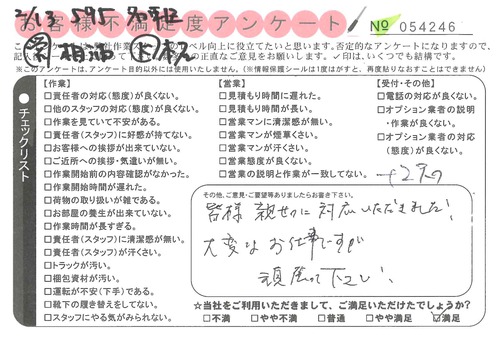 2/13 595
お客様不満足度アンケート
No 054246
※このアンケートは、アンケート目的以外には使用いたしません。(※情報保護シールは1度はがすと、再度貼りなおすことはできません)
チェックリスト
【作業】
□責任者の対応(態度)が良くない。
□他のスタッフの対応(態度)が良くない。
□作業を見ていて不安がある。
□責任者(スタッフ)に好感が持てない。
□お客様への挨拶が出来ていない。
□ご近所への挨拶・気遣いが無い。
□作業開始前の内容確認がなかった。
□作業開始時間が遅れた。
□荷物の取り扱いが雑である。
□お部屋の養生が出来ていない。
□作業時間が長すぎる。
□責任者(スタッフ)に清潔感が無い。
□責任者(スタッフ)が汗くさい。
□トラックが汚い。
□梱包資材が汚い。
□運転が不安(下手)である。
□靴下の履き替えをしてない。
□スタッフにやる気がみられない。
【営業】
□見積もり時間に遅れた。
□見積もり時間が長い。
□営業マンに清潔感が無い。
□営業マンが煙草くさい。
□営業マンが汗くさい。
□営業態度が良くない。
□営業の説明と作業が一致してない。
【受付・その他】
□電話の対応が良くない。
□オプション業者の説明
・作業が良くない。
□オプション業者の対応
(態度)が良くない。
その他、ご意見・ご要望等ありましたらお書き下さい。
皆様 親切に対応いただきました!
大変なお仕事ですが
頑張って下さい。
☆当社をご利用いただきまして、ご満足いただけたでしょうか?
□不満 □やや不満 □普通 □やや満足 ☑満足